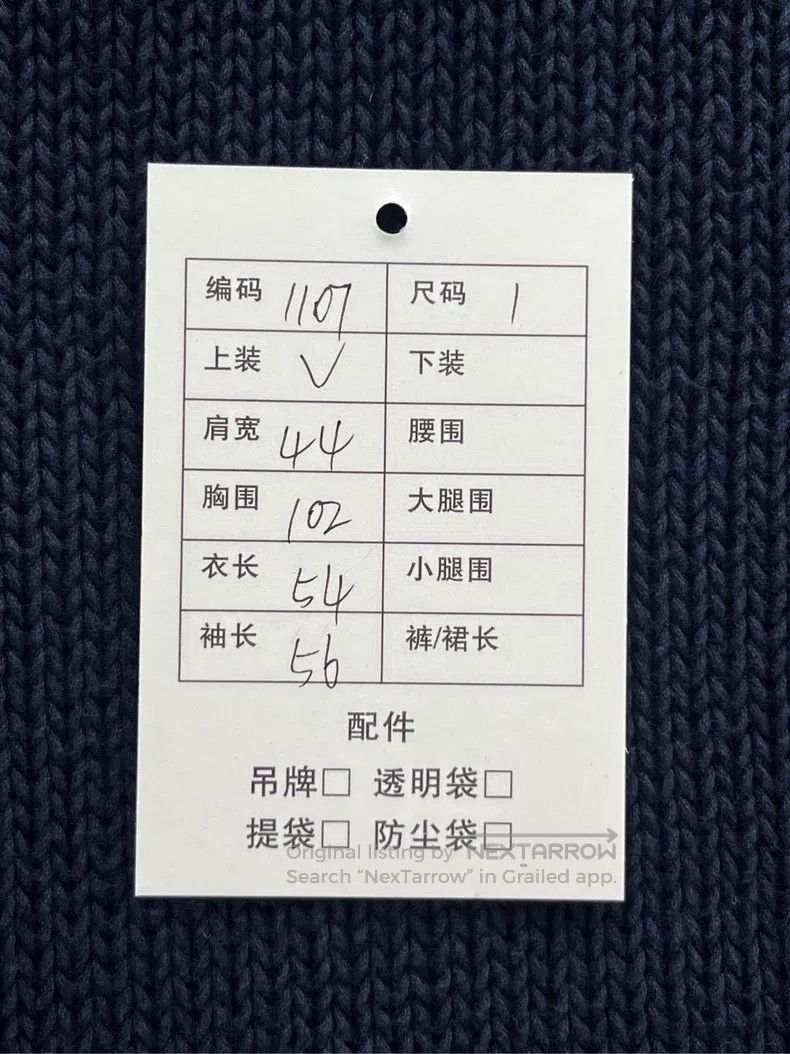 编码 1107 尺码 1
上装 ✓ 下装
肩宽 44 腰围
胸围 102 大腿围
衣长 54 小腿围
袖长 56 裤/裙长
配件
吊牌□ 透明袋□
提袋□ 防尘袋□
Original listing by NEXTARROW
Search “NexTarrow” in Grailed app.